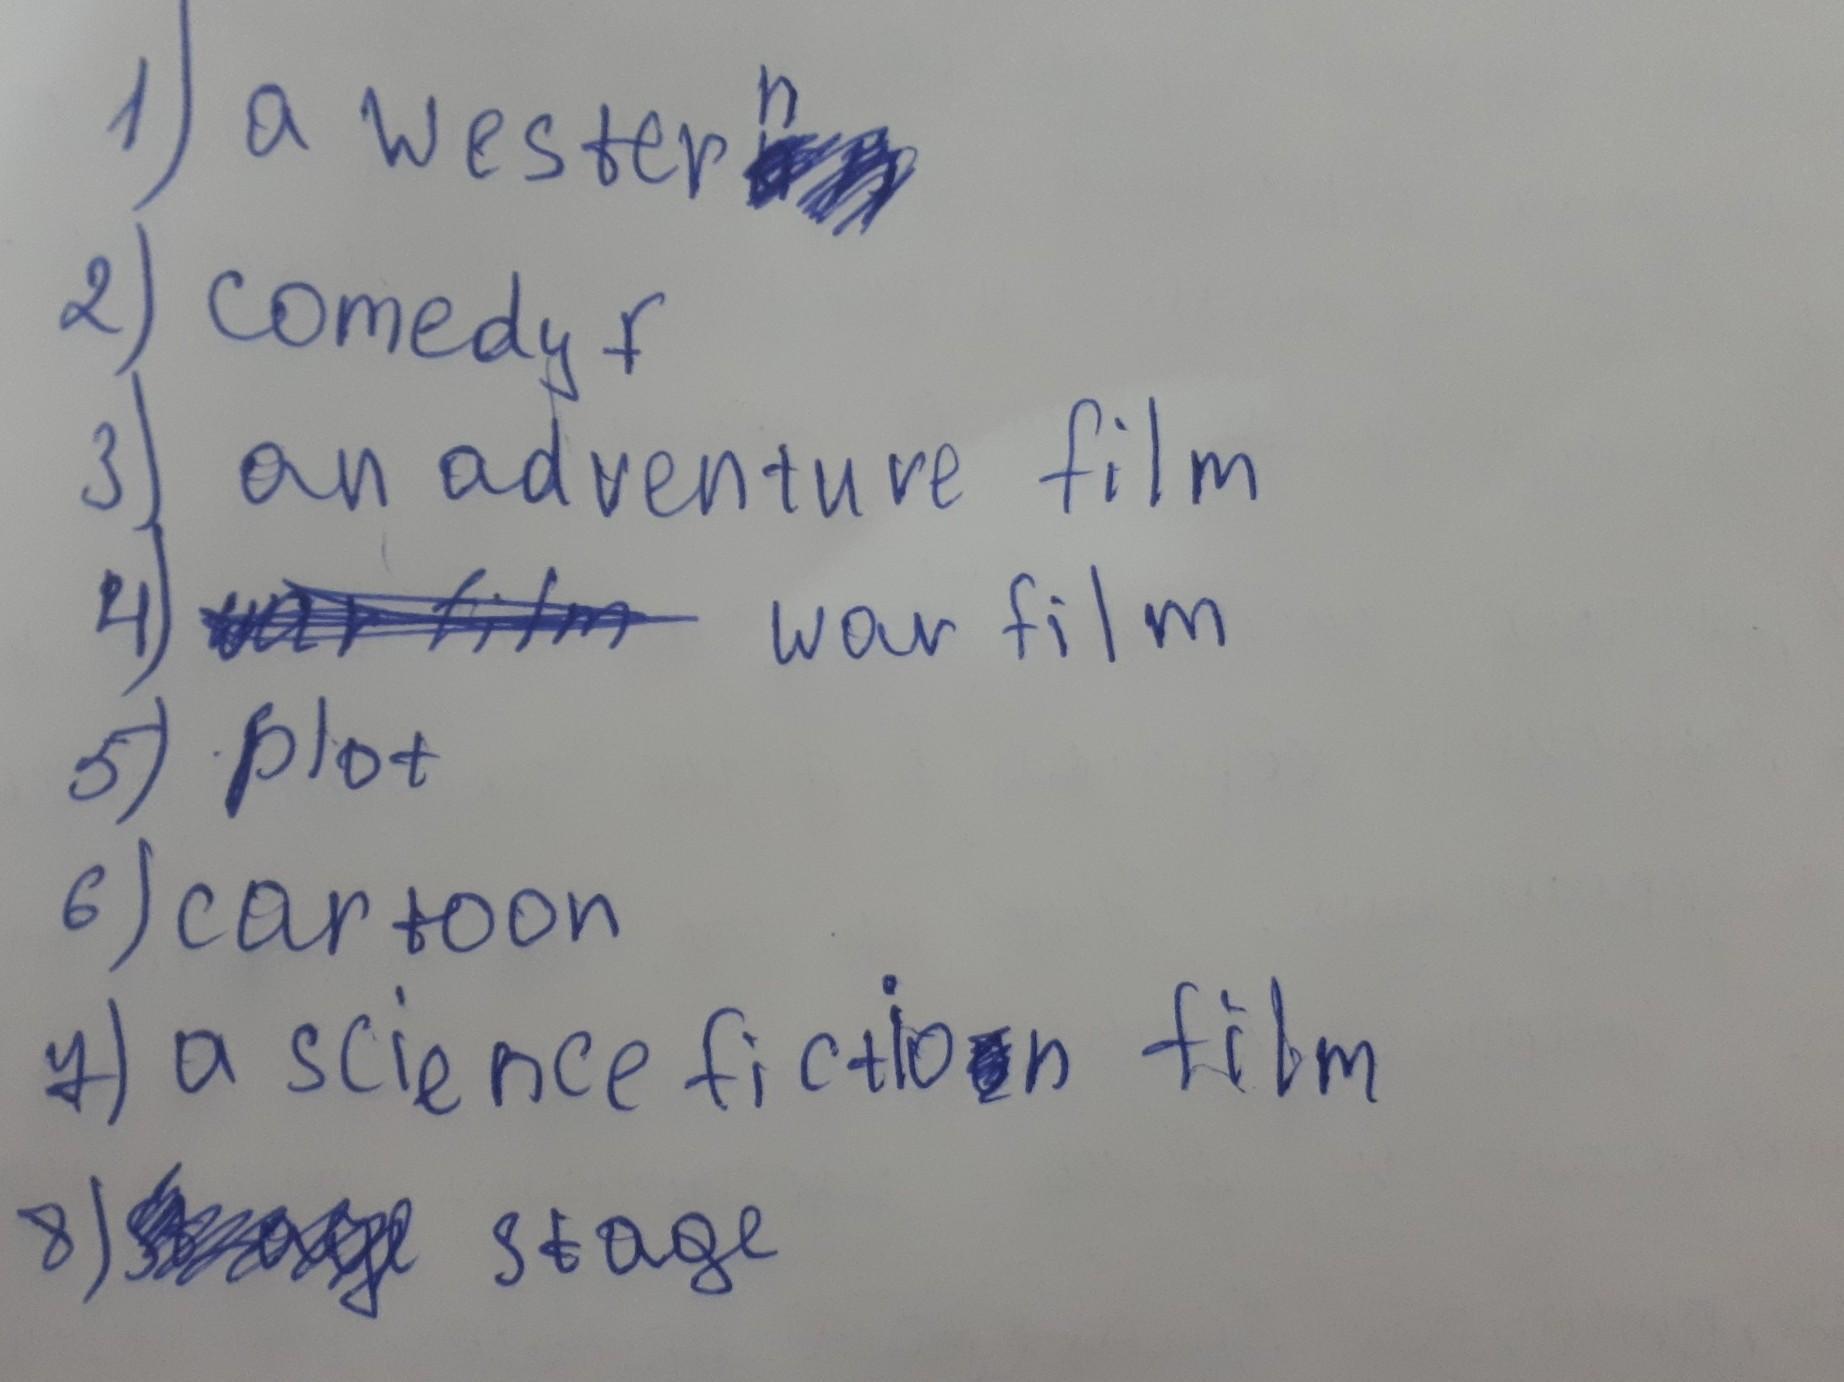 1) a western
2) comedy f
3) an adventure film
4) war film war film
5) plot
6) cartoon
7) a science fiction film
8) stage